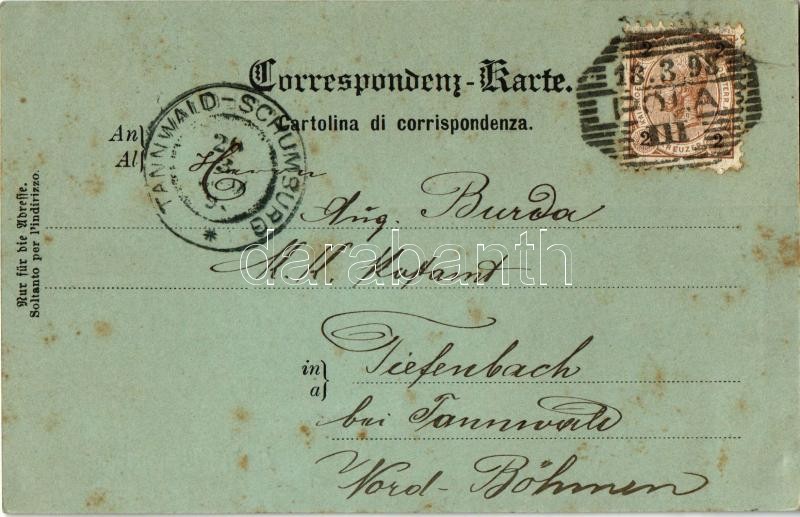 Correspondenz-Karte.
Cartolina di corrispondenza.
An
Al
Herrn
Aug. Burda
K.K. Postamt
in
a
Tiefenbach
bei Tannwald
Nord-Böhmen
Nur für die Adresse.
Soltanto per l'indirizzo.
TANNWALD-SCHUMBURG
18.3.98
POLA
III
2 2
2 2
KREUZER
darabanth